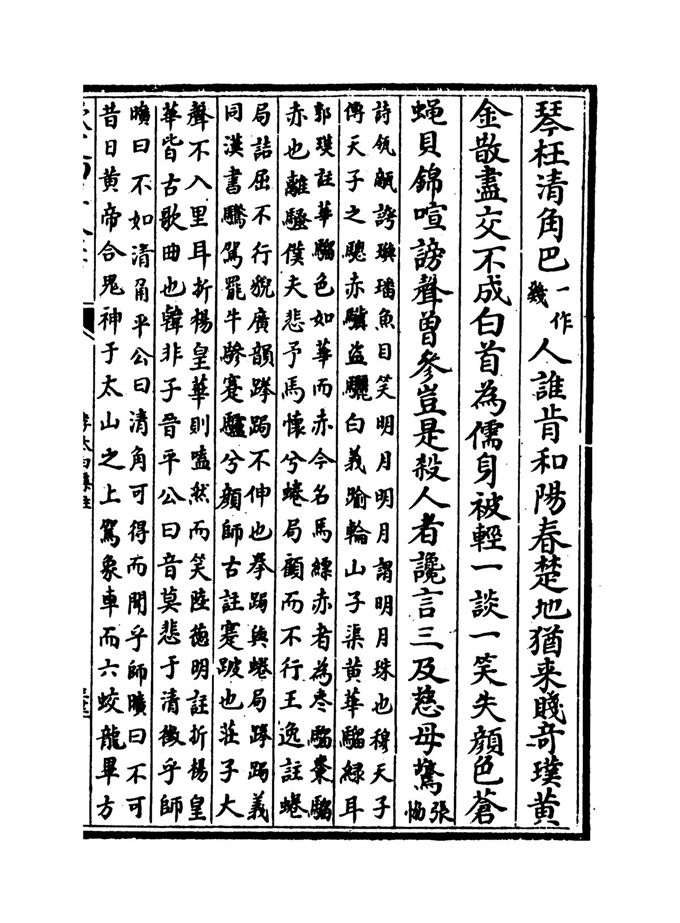 琴枉清角巴一作幾人誰肯和陽春楚地猶来賤奇璞黄
金散盡交不成白首為儒身被輕一談一笑失顔色蒼
蝇貝錦喧謗聲曽參豈是殺人者讒言三及慈母驚張恊
詩瓴甋誇璵璠魚目笑明月明月謂明月珠也穆天子
傳天子之驄赤驥盗驪白義踰輪山子渠黄華騮緑耳
郭璞註華騮色如華而赤今名馬縹赤者為枣騮棗騮
赤也離騷僕夫悲予馬懷兮蜷局顧而不行王逸註蜷
局詰屈不行貌廣韻踡跼不伸也拳跼與蜷局踡跼義
同漢書騰駕罷牛驂蹇驢兮顔師古註蹇跛也莊子大
聲不入里耳折楊皇華則嗑然而笑陸徳明註折楊皇
華皆古歌曲也韓非子晉平公曰音莫悲于清徵乎師
曠曰不如清角平公曰清角可得而聞乎師曠曰不可
昔日黄帝合鬼神于太山之上駕象車而六蛟龍畢方